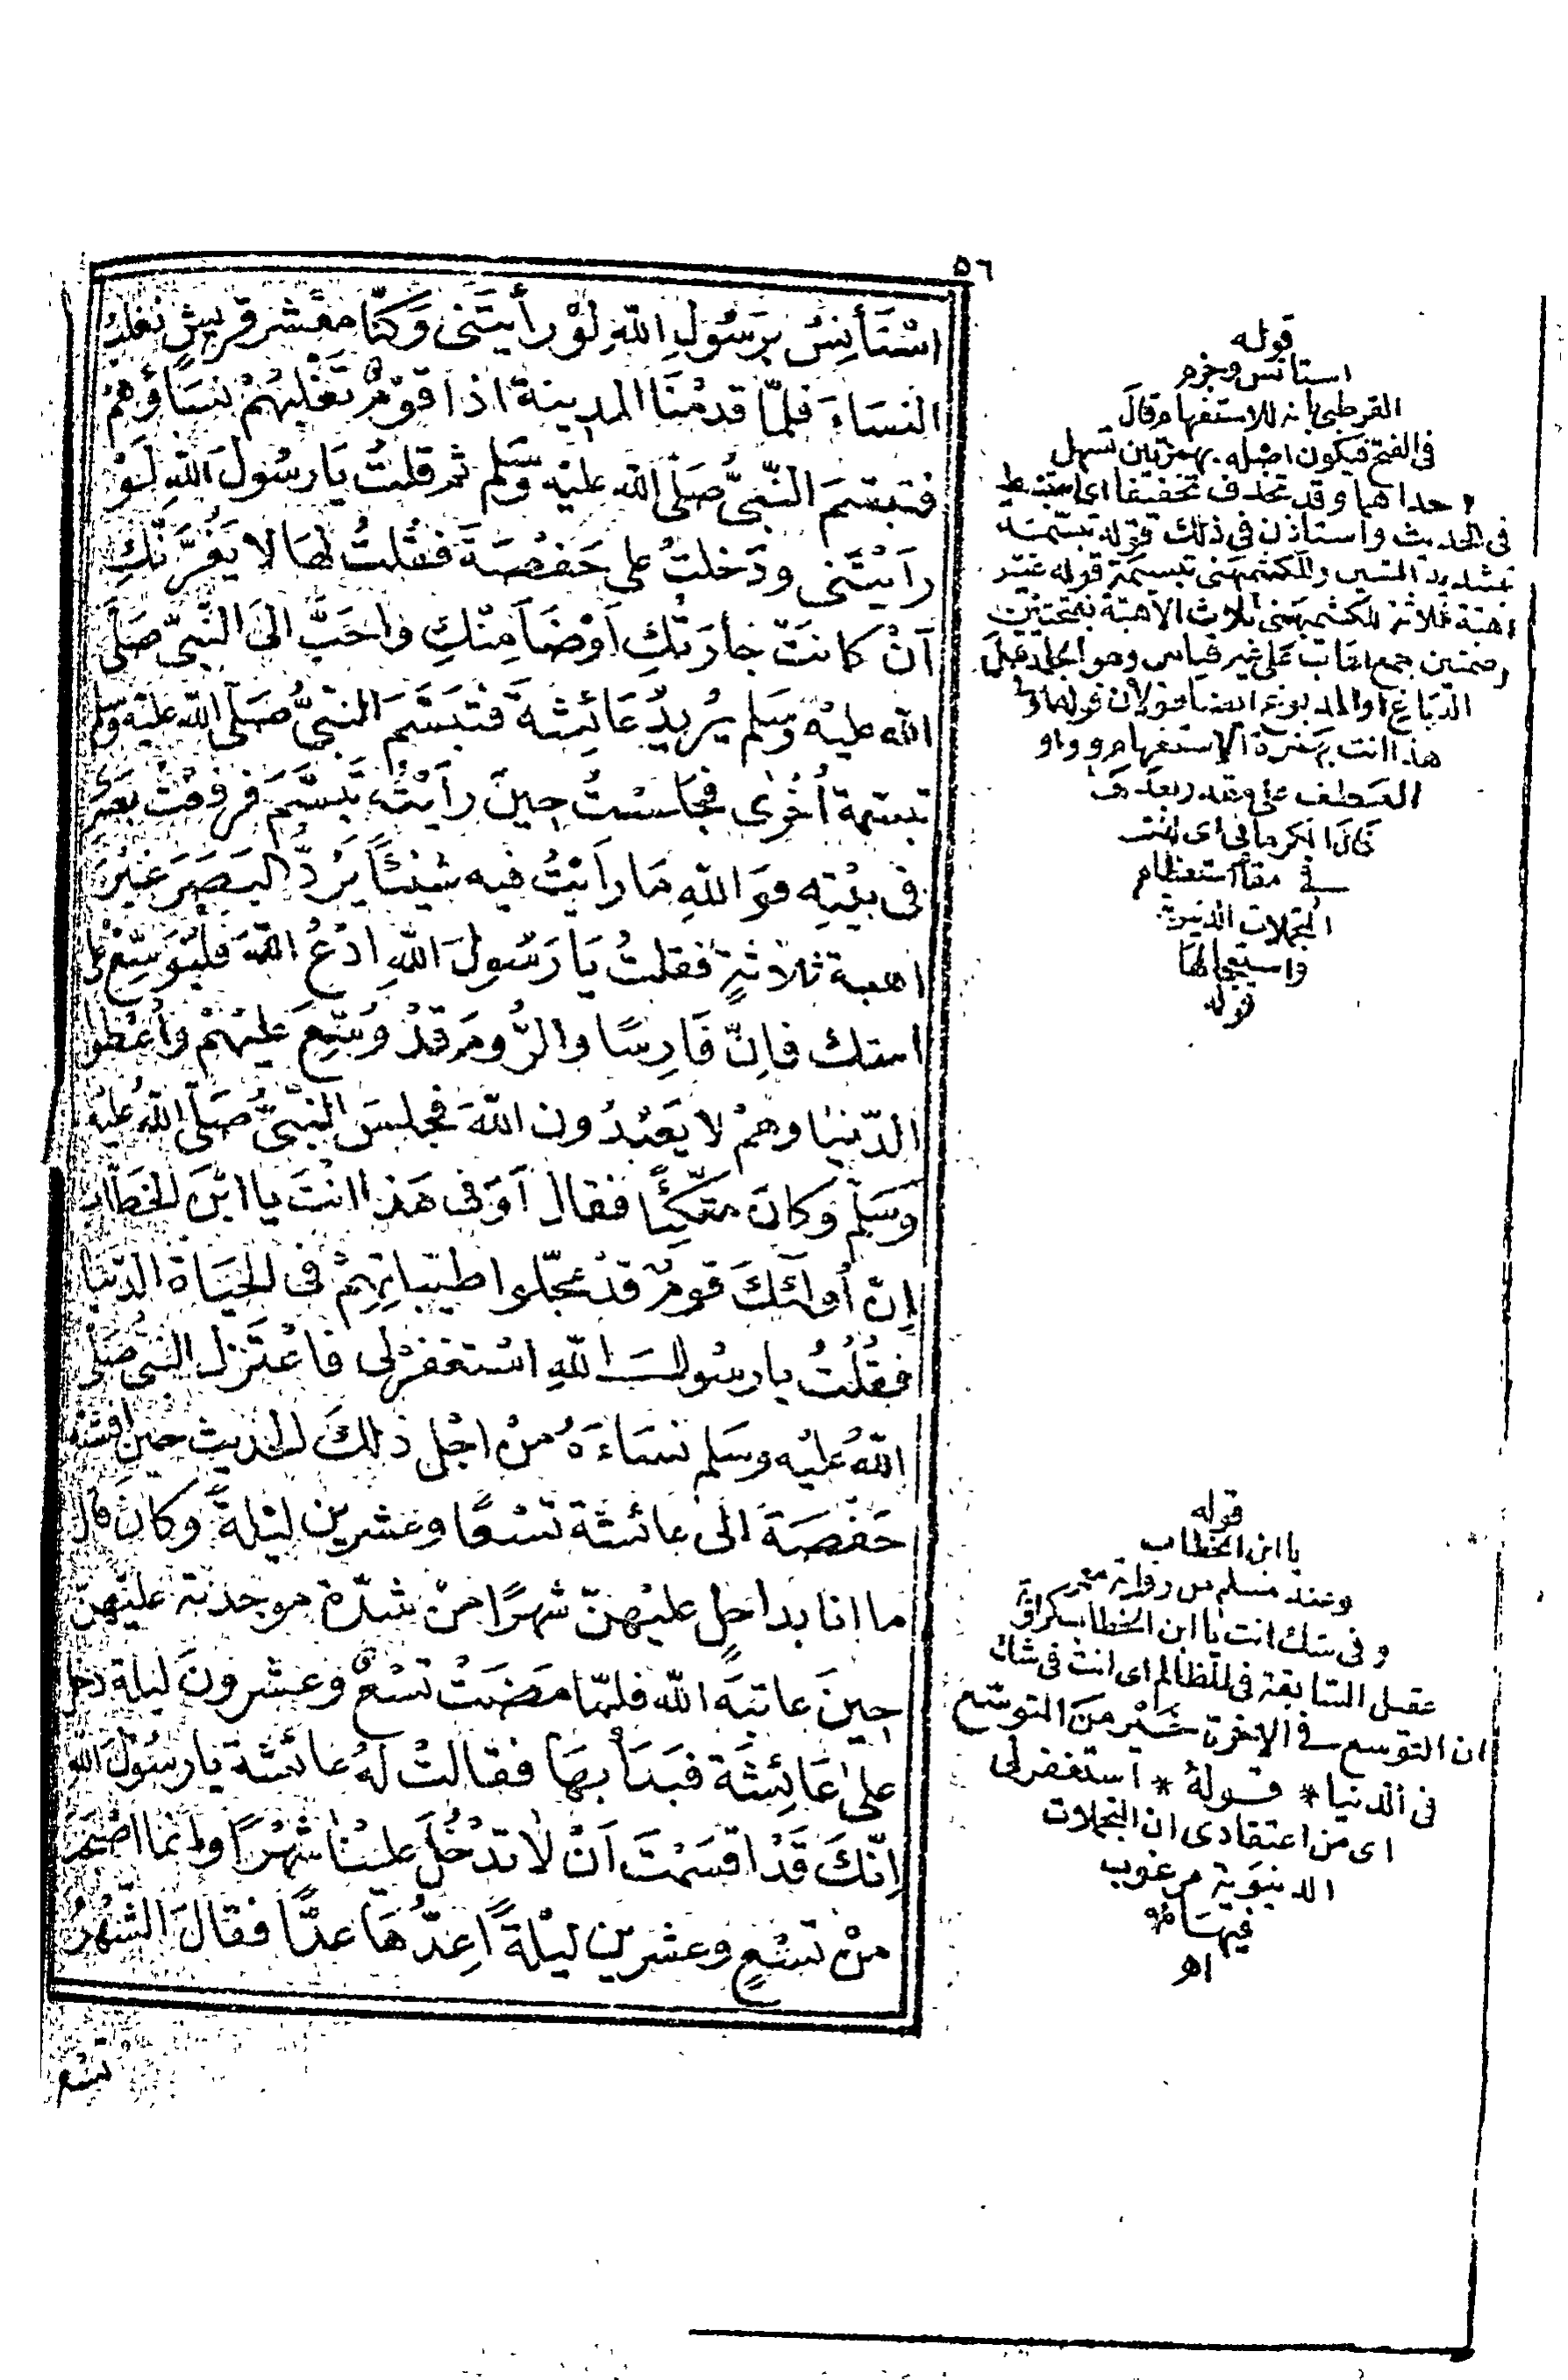 ٥٦
اسْتَأنِسُ بِرَسُولِ اللهِ لَوْ رأيتَنى وَكنّا معْشر قريشٍ نغلبُ
النسَاءَ فلمّا قدمْنَا المدينة اذا قوْمٌ تَغْلبُهُمْ نسَاؤُهُمْ
فتبسّمَ النّبىُّ صَلّى الله عليْه وسَّلم ثم قلتُ يَارسُولَ اللهِ لَوْ
رَايْتَنى ودَخلتُ على حَفْصَةَ فقُلتُ لهَا لا يَغُرَّنّكِ
اَنْ كانَتْ جَارَتُكِ اَوْضَأ مِنْكِ واحَبَّ الى النّبىّ صَلّى
الله عليْه وَسَلم يُريدُ عَائِشةَ فتَبَسَّمَ النبىُّ صَلّى الله عليْه وَسَلم
تبسّمة اُخْرٰى فجَلسْتُ حِينَ رَاَيْتُه تَبسَّمَ فرفعْتُ بصَرى
فى بيْتِهِ فوَ اللهِ مَا رَاَيْتُ فيه شيْئًا يَرُدُّ البَصَرَ غيْرَ
اهبة ثلاثةٍ فقلتُ يَا رَسُولَ اللهِ ادْعُ اللهَ فليُوَسّعْ على
امتك فاِنّ فَارِسًا والرُّومَ قدْ وُسّعَ عَليْهمْ واُعْطوا
الدّنيَا وهمْ لا يَعْبُدُون اللهَ فجلسَ النّبىُّ صَلّى اللهُ عليْه
وَسَلّم وَكانَ متّكِئًا فقال اَوَفى هَذا انْتَ يا ابْنَ الخطّاب
إنّ اُولَئكَ قومٌ قدْ عجّلوا طيّباتِهِمْ فى الحيَاة الدّنيَا
فقُلْتُ يارسُولَ اللهِ اسْتغفرْلى فاعْتَزل النبىُّ صَلّى
اللهُ عليْه وسَلم نسَاءَهُ منْ اجْلِ ذلكَ الحَديث حين افشته
حَفْصَةَ الى عائشة تسْعًا وعشرين ليْلةً وكانَ قال
ما انا بداخلٍ عليْهنّ شهرًا منْ شدّة موجدته عليْهنّ
حِينَ عاتبَهَ الله فلمّا مَضَتْ تسْعٌ وعشرونَ ليلة دخل
علىٰ عَائِشَة فبَدَأ بهَا فقالتْ لهُ عائشة يارسُولَ اللهِ
اِنّكَ قَدْ اقسَمْتَ اَنْ لاتدْخُلَ عليْنا شَهْرًا وانما اصْبَحْتَ
منْ تسْعٍ وعشرين ليْلةً اَعِدُّهَا عدًّا فقالَ الشّهْرُ
تسْع
قوله
استانس وجزم
القرطبى بانه للاستفهام وقال
فى الفتح فيكون اصله بهمزتين تسهل
احداهما وقد تحذف تخفيفا اى انبسط
فى الحديث واستاذن فى ذلك قوله تبسّمة
بتشديد السّين وللكشميهنى تبسيمة قوله غير
اهبة ثلاثة للكشميهنى ثلاث الاهبة بفتحتين
وضمتين جمع اهاب على غير قياس وهو الجلد قبل
الدّبَاغ او المدبوغ ايضا قوله
هذا انت بهمزة الاستفهام وواو
العطف على مقدر بعدها
قال الكرمانى اى انت
فى مقام استعظام
التجملات الدنيوية
واستعجالها
قوله
قوله
يا ابن الخطاب
وعند مسلم من رواية معمر
او فى شك انت يا ابن الخطاب كرواية
عقيل السّابقة فى المظالم اى انت فى شك
ان التوسع فى الاخرة خَيْر منَ التوسّع
فى الدنيا * قولهُ * استغفرلى
اى من اعتقادى ان التجملات
الدنيَوية مرغوب
فيهَا
اه